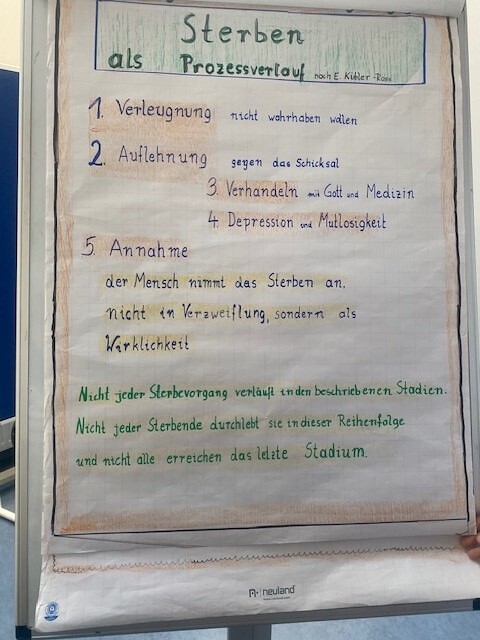 Sterben
als Prozessverlauf nach E. Kübler-Ross
1. Verleugnung nicht wahrhaben wollen
2. Auflehnung gegen das Schicksal
3. Verhandeln mit Gott und Medizin
4. Depression und Mutlosigkeit
5. Annahme
der Mensch nimmt das Sterben an,
nicht in Verzweiflung, sondern als
Wirklichkeit
Nicht jeder Sterbevorgang verläuft in den beschriebenen Stadien.
Nicht jeder Sterbende durchlebt sie in dieser Reihenfolge
und nicht alle erreichen das letzte Stadium.
neuland